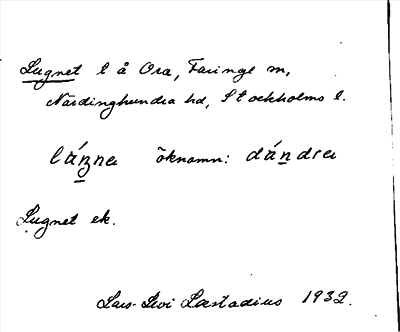 Lugnet l å Ora, Faringe m,
Närdinghundra hd, Stockholms l.
öknamn:
Lugnet ek.
Lars-Levi Læstadius 1932.